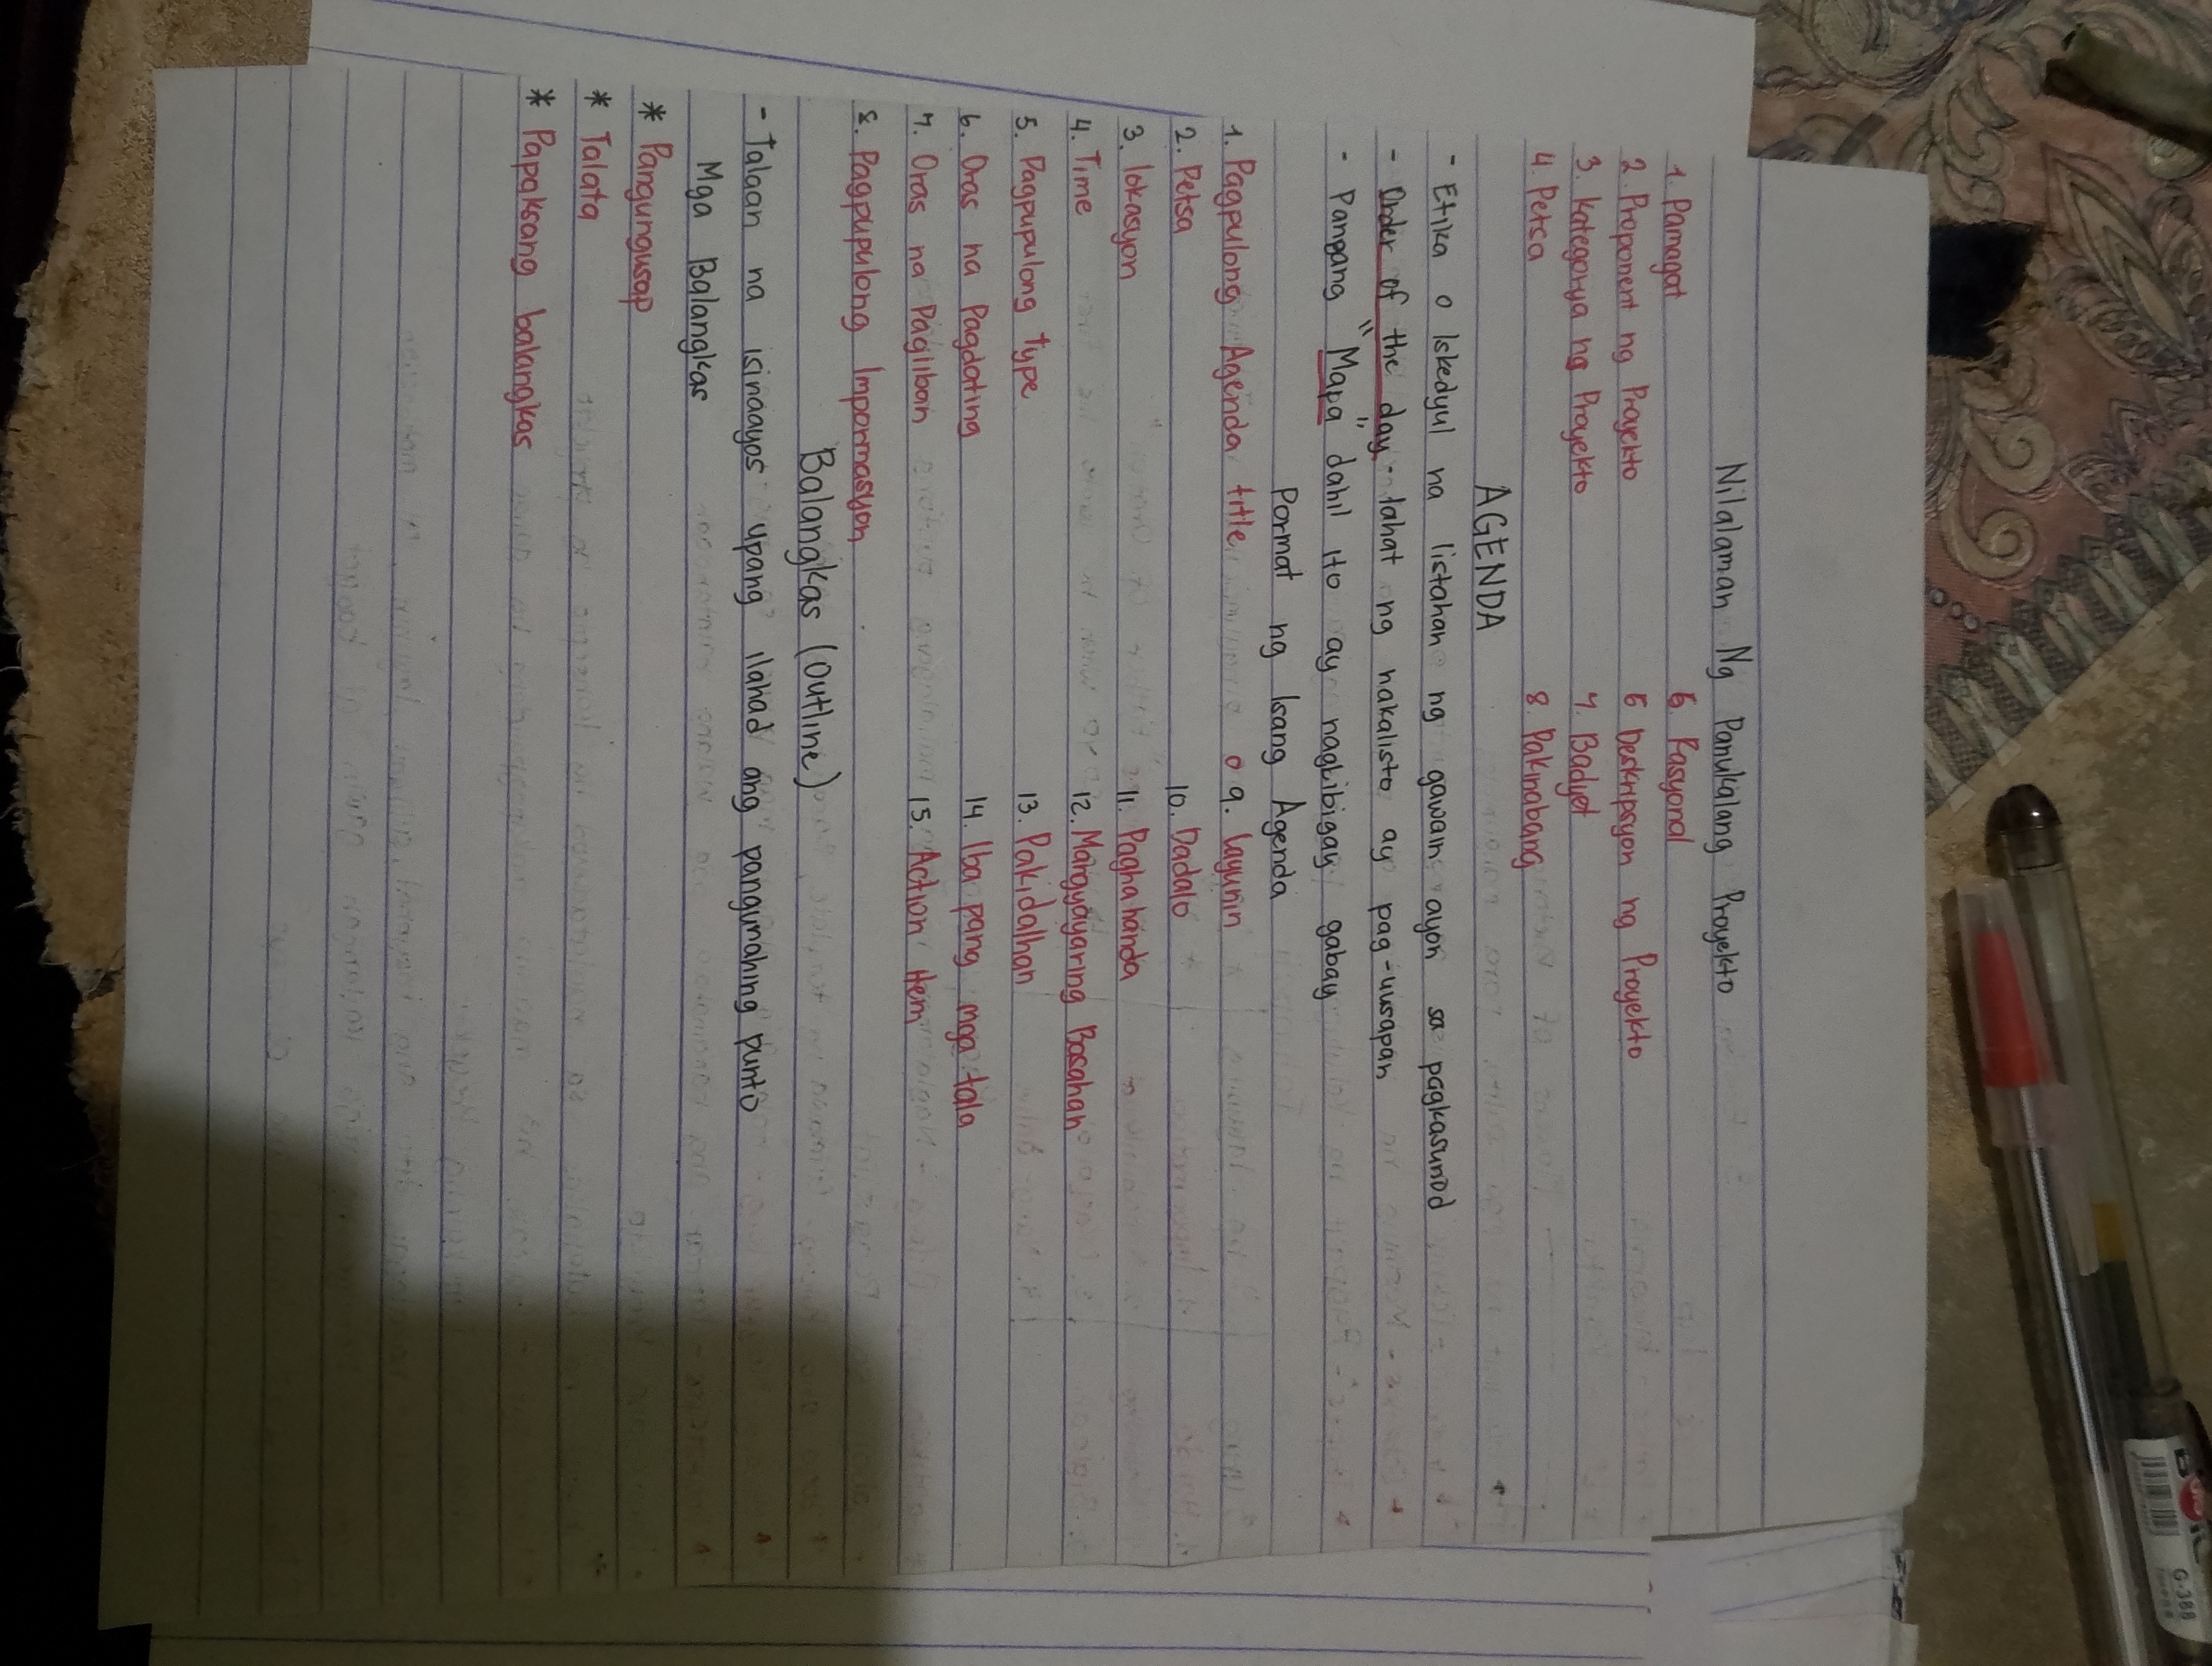 Nilalaman Ng Panukalang Proyekto
1. Pamagat 5. Rasyonal
2. Proponent ng Proyekto 6 Deskripsyon ng Proyekto
3. Kategorya ng Proyekto 7. Badyet
4. Petsa 8. Pakinabang
AGENDA
- Etika o Iskedyul na listahan ng gawain ayon sa pagkasunod
- Order of the day - lahat ng nakalisto ay pag-uusapan
- Pangang "Mapa" dahil ito ay nagbibigay gabay
Pormat ng Isang Agenda
1. Pagpulong Agenda title o 9. Layunin
2. Petsa 10. Dadalo
3. lokasyon 11. Paghahanda
4. Time 12. Mangyayaring Basahan
5. Pagpupulong type 13. Pakidalhan
6. Oras na Pagdating 14. Iba pang mga tala
7. Oras na Pagliban 15. Action Item
8. Pagpupulong Impormasyon
Balangkas (Outline)
- Talaan na isinaayos upang ilahad ang pangunahing punto
Mga Balangkas
* Pangungusap
* Talata
* Papaksang balangkas
G-388